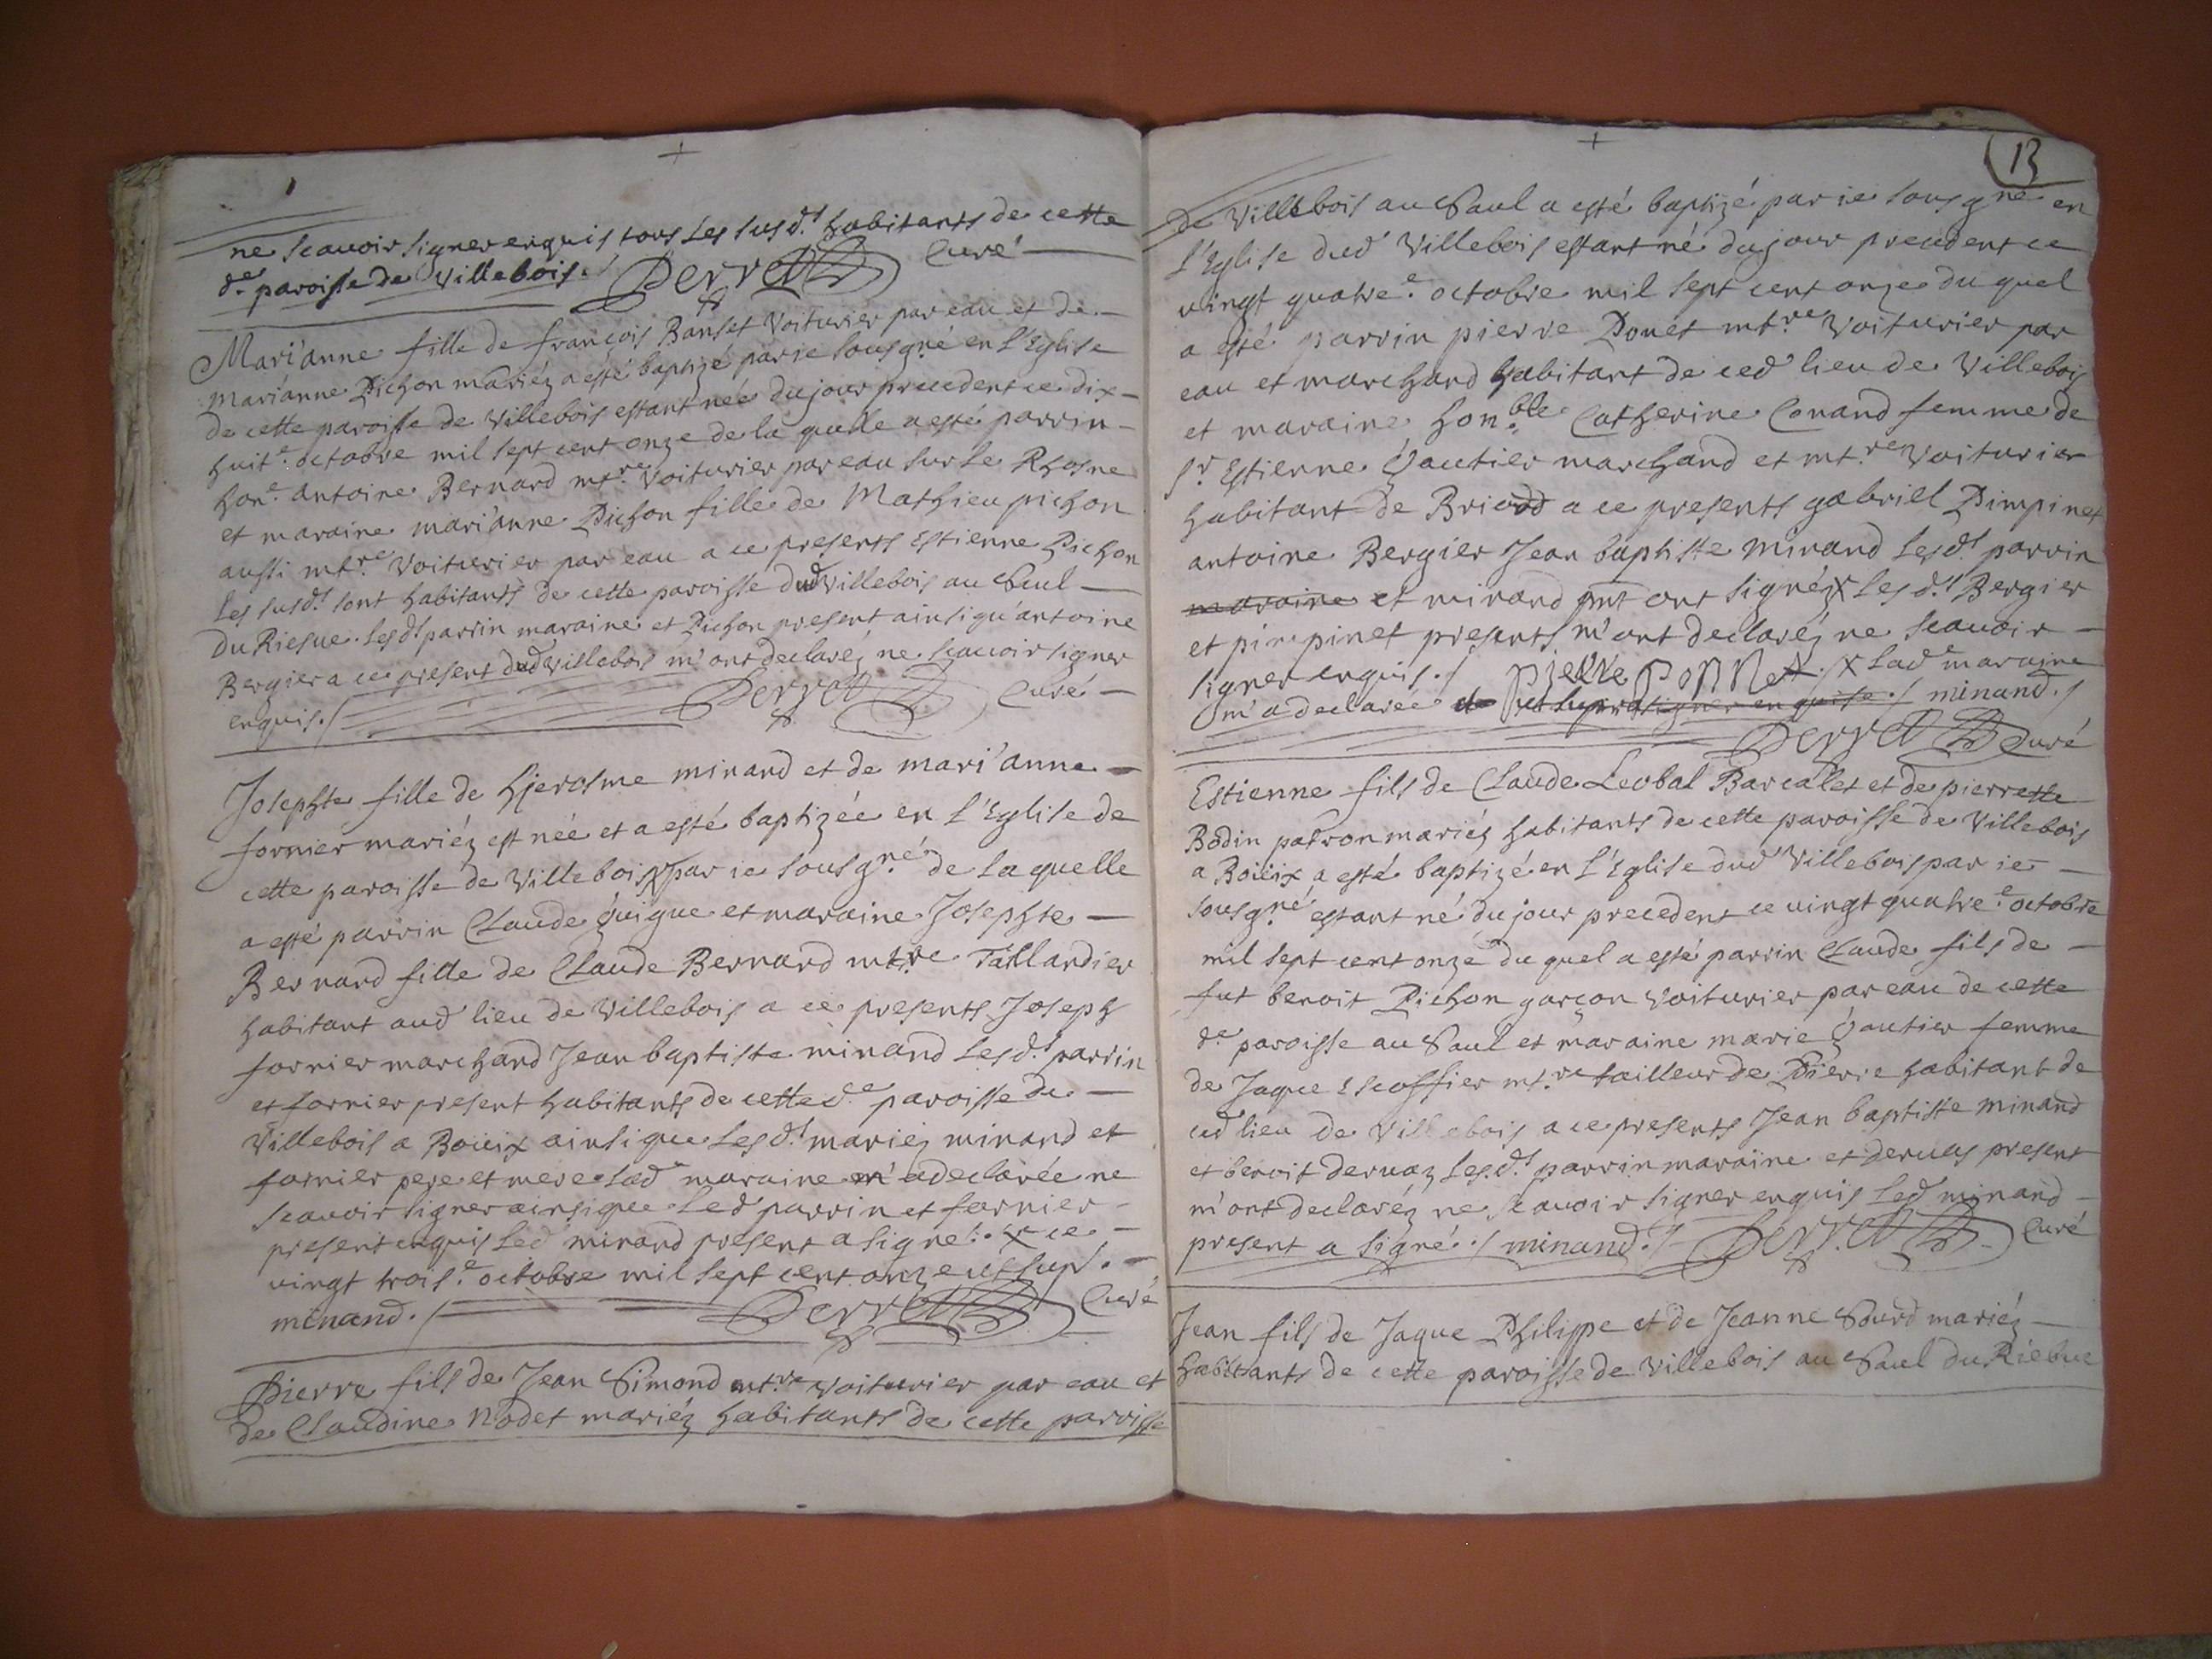 ne scauoir signer enquis tous les susd.ts habitants de cette
d.e paroisse de Villebois./ Perret Curé
Mari'anne fille de françois Banset Voiturier par eau et de
Mari'anne Pichon mariéz a esté baptizé par ie sousgné en l'Eglise
de cette paroisse de Villebois estant née du jour precedent ce dix
huit.e octobre mil sept cent onze de la quelle a esté parrin
hon.e antoine Bernard mt.re Voiturier par eau sur le Rhosne
et maraine mari'anne Pichon fille de Mathieu pichon
aussi mt.re Voiturier par eau a ce presents Estienne Pichon
Les susd.ts sont habitants de cette paroisse dud Villebois au Saul
Du Riesue. Lesd.ts parrin maraine et Pichon present ainsi qu'antoine
Bergier a ce present dud Villebois m'ont declaréz ne scauoir signer
enquis./ Perret Curé
Josephte fille de hjerosme minand et de mari'anne
fornier mariéz est née et a esté baptizée en l'Eglise de
cette paroisse de Villebois X par ie sousg.né de la quelle
a esté parrin Claude Guigue et maraine Josephte
Bernard fille de Claude Bernard mt.re Taillandier
habitant aud lieu de Villebois a ce presents Joseph
fornier marchand Jean baptiste minand Lesd.ts parrin
et fornier present habitants de cette d.e paroisse de
Villebois a Boüix ainsi que Lesd.ts mariéz minand et
fornier pere et mere Lad.e maraine m'a declarée ne
scauoir signer ainsi que Led parrin et fornier
present enquis Led minand present a signé. X ce
vingt trois.e octobre mil sept cent onze ut sup.
minand./ Perret Curé
Pierre fils de Jean Simond mt.re Voiturier par eau et
de Claudine Nodet mariéz habitants de cette paroisse
13
de Villebois au Saul a esté baptizé par ie sousgné en
l'Eglise dud Villebois estant né du jour precedent ce
vingt quatre.e octobre mil sept cent onze du quel
a esté parrin pierre Ponet mt.re Voiturier par
eau et marchand habitant de ced lieu de Villebois
et maraine hon.ble Catherine Conand femme de
s.r Estienne Gautier marchand et mt.re Voiturier
habitant de Briord a ce presents gabriel Pimpinet
antoine Bergier Jean baptiste minand Lesd.ts parrin
maraine et minand ont signéz X Lesd.ts Bergier
et pimpinet presents m'ont declaréz ne scauoir
signer enquis./ pierre ponnet X Lad.e maraine
m'a declarée ut supra signer enquise./ minand./
Perret Curé
Estienne fils de Claude Leobal Barcalet et de pierrette
Bodin patron mariéz habitants de cette paroisse de Villebois
a Boüix a esté baptizé en l'Eglise dud Villebois par ie
sousg.né estant né du jour precedent ce vingt quatre.e octobre
mil sept cent onze du quel a esté parrin Claude fils de
fut benoit Pichon garçon Voiturier par eau de cette
d.e paroisse au Saul et maraine marie Gautier femme
de Jaque Escoffier mt.re tailleur de Pierre habitant de
ced lieu de Villebois a ce presents Jean baptiste minand
et benoit deruaz Lesd.ts parrin maraine et deruas present
m'ont declaréz ne scauoir signer enquis Led minand
present a signé./ minand./ Perret Curé
Jean fils de Jaque Philippe et de Jeanne Sourd mariéz
habitants de cette paroisse de Villebois au Saul du Riebue